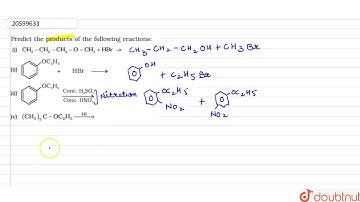 20599633
Predict the products of the following reactions:
(i) CH₃ – CH₂ – CH₂ – O – CH₃ + HBr → CH₃–CH₂–CH₂OH + CH₃Br
OC₂H₅ OH
(ii) + HBr → + C₂H₅Br
OC₂H₅ OC₂H₅ OC₂H₅
(iii) Conc. H₂SO₄ Nitration +
Conc. HNO₃ NO₂ NO₂
(iv) (CH₃)₃ C – OC₂H₅ HI →
doubtnut